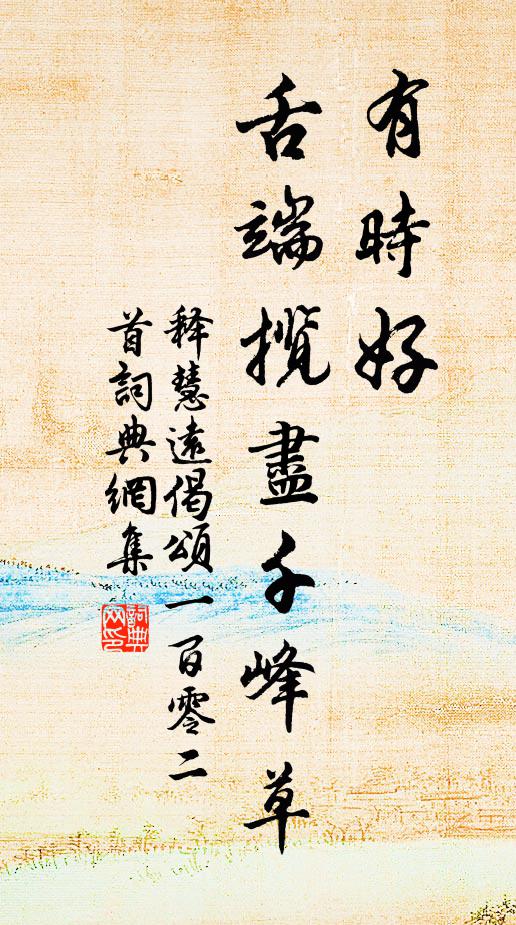 有時好
舌端攬盡千峰草
釋慧遠偈頌一百零二
首詞典網集
詞典
网印